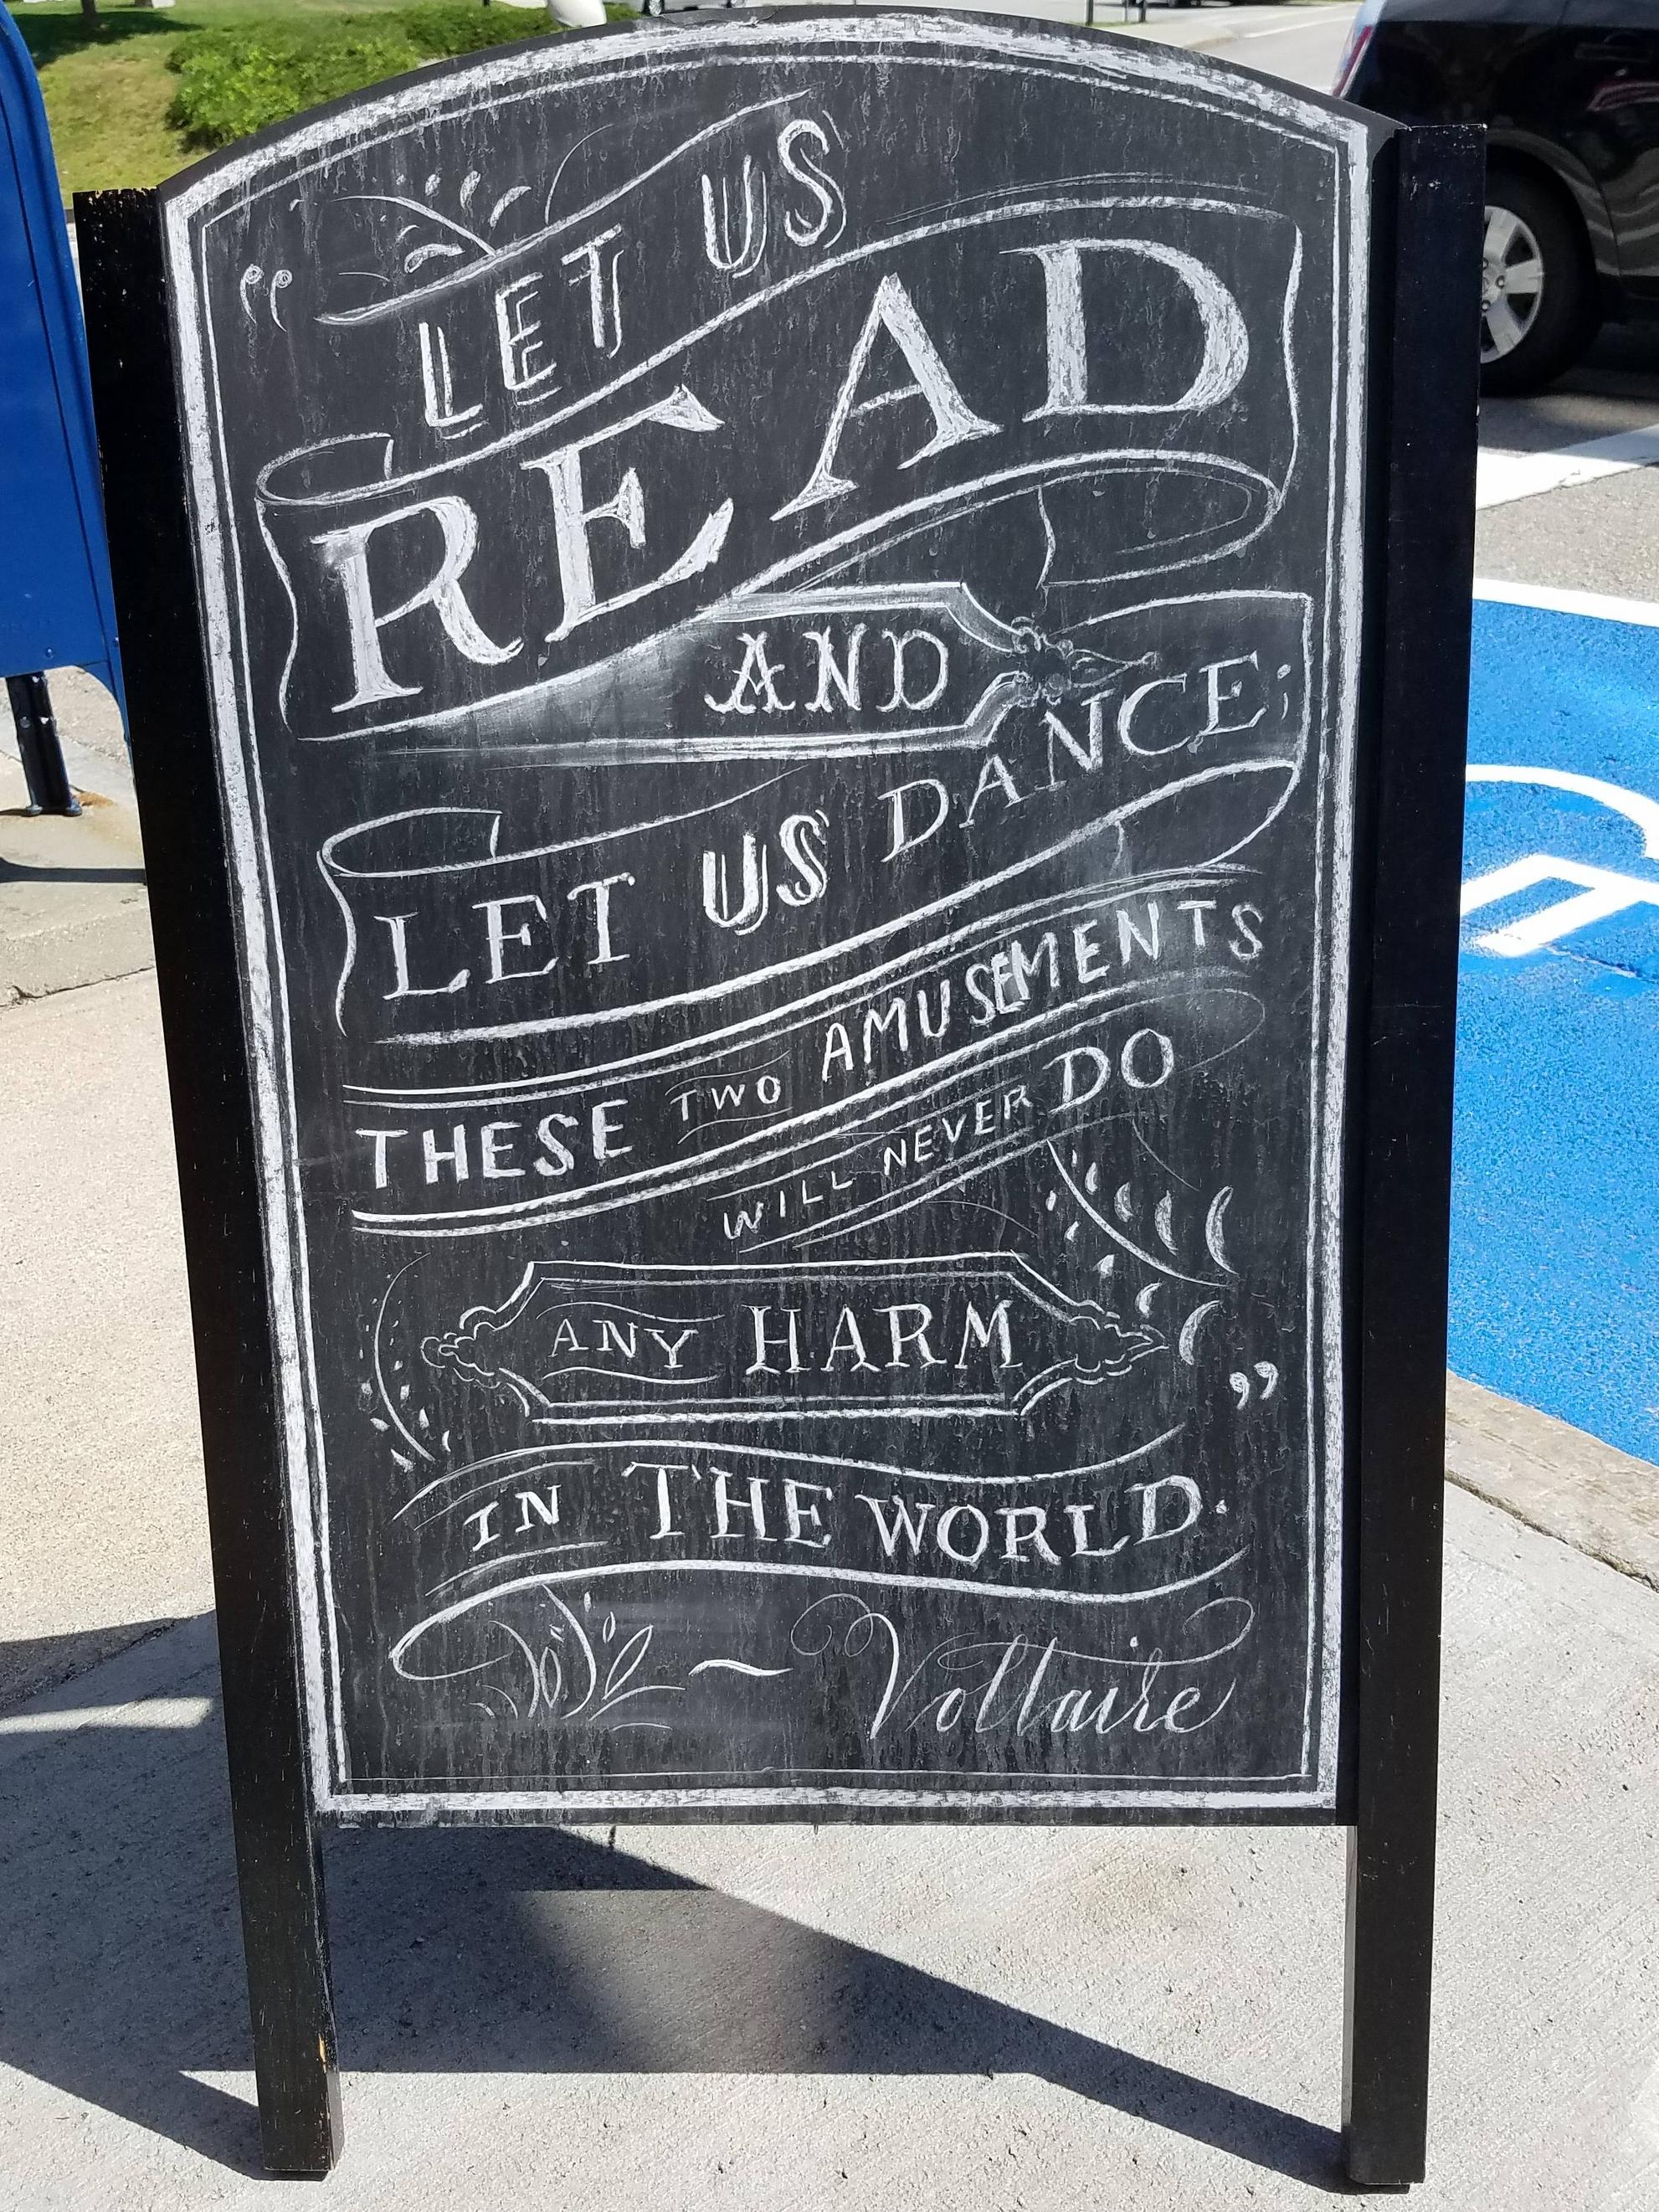 “ LET US
READ
AND
LET US DANCE;
THESE TWO AMUSEMENTS
WILL NEVER DO
ANY HARM ”
IN THE WORLD.
~ Voltaire